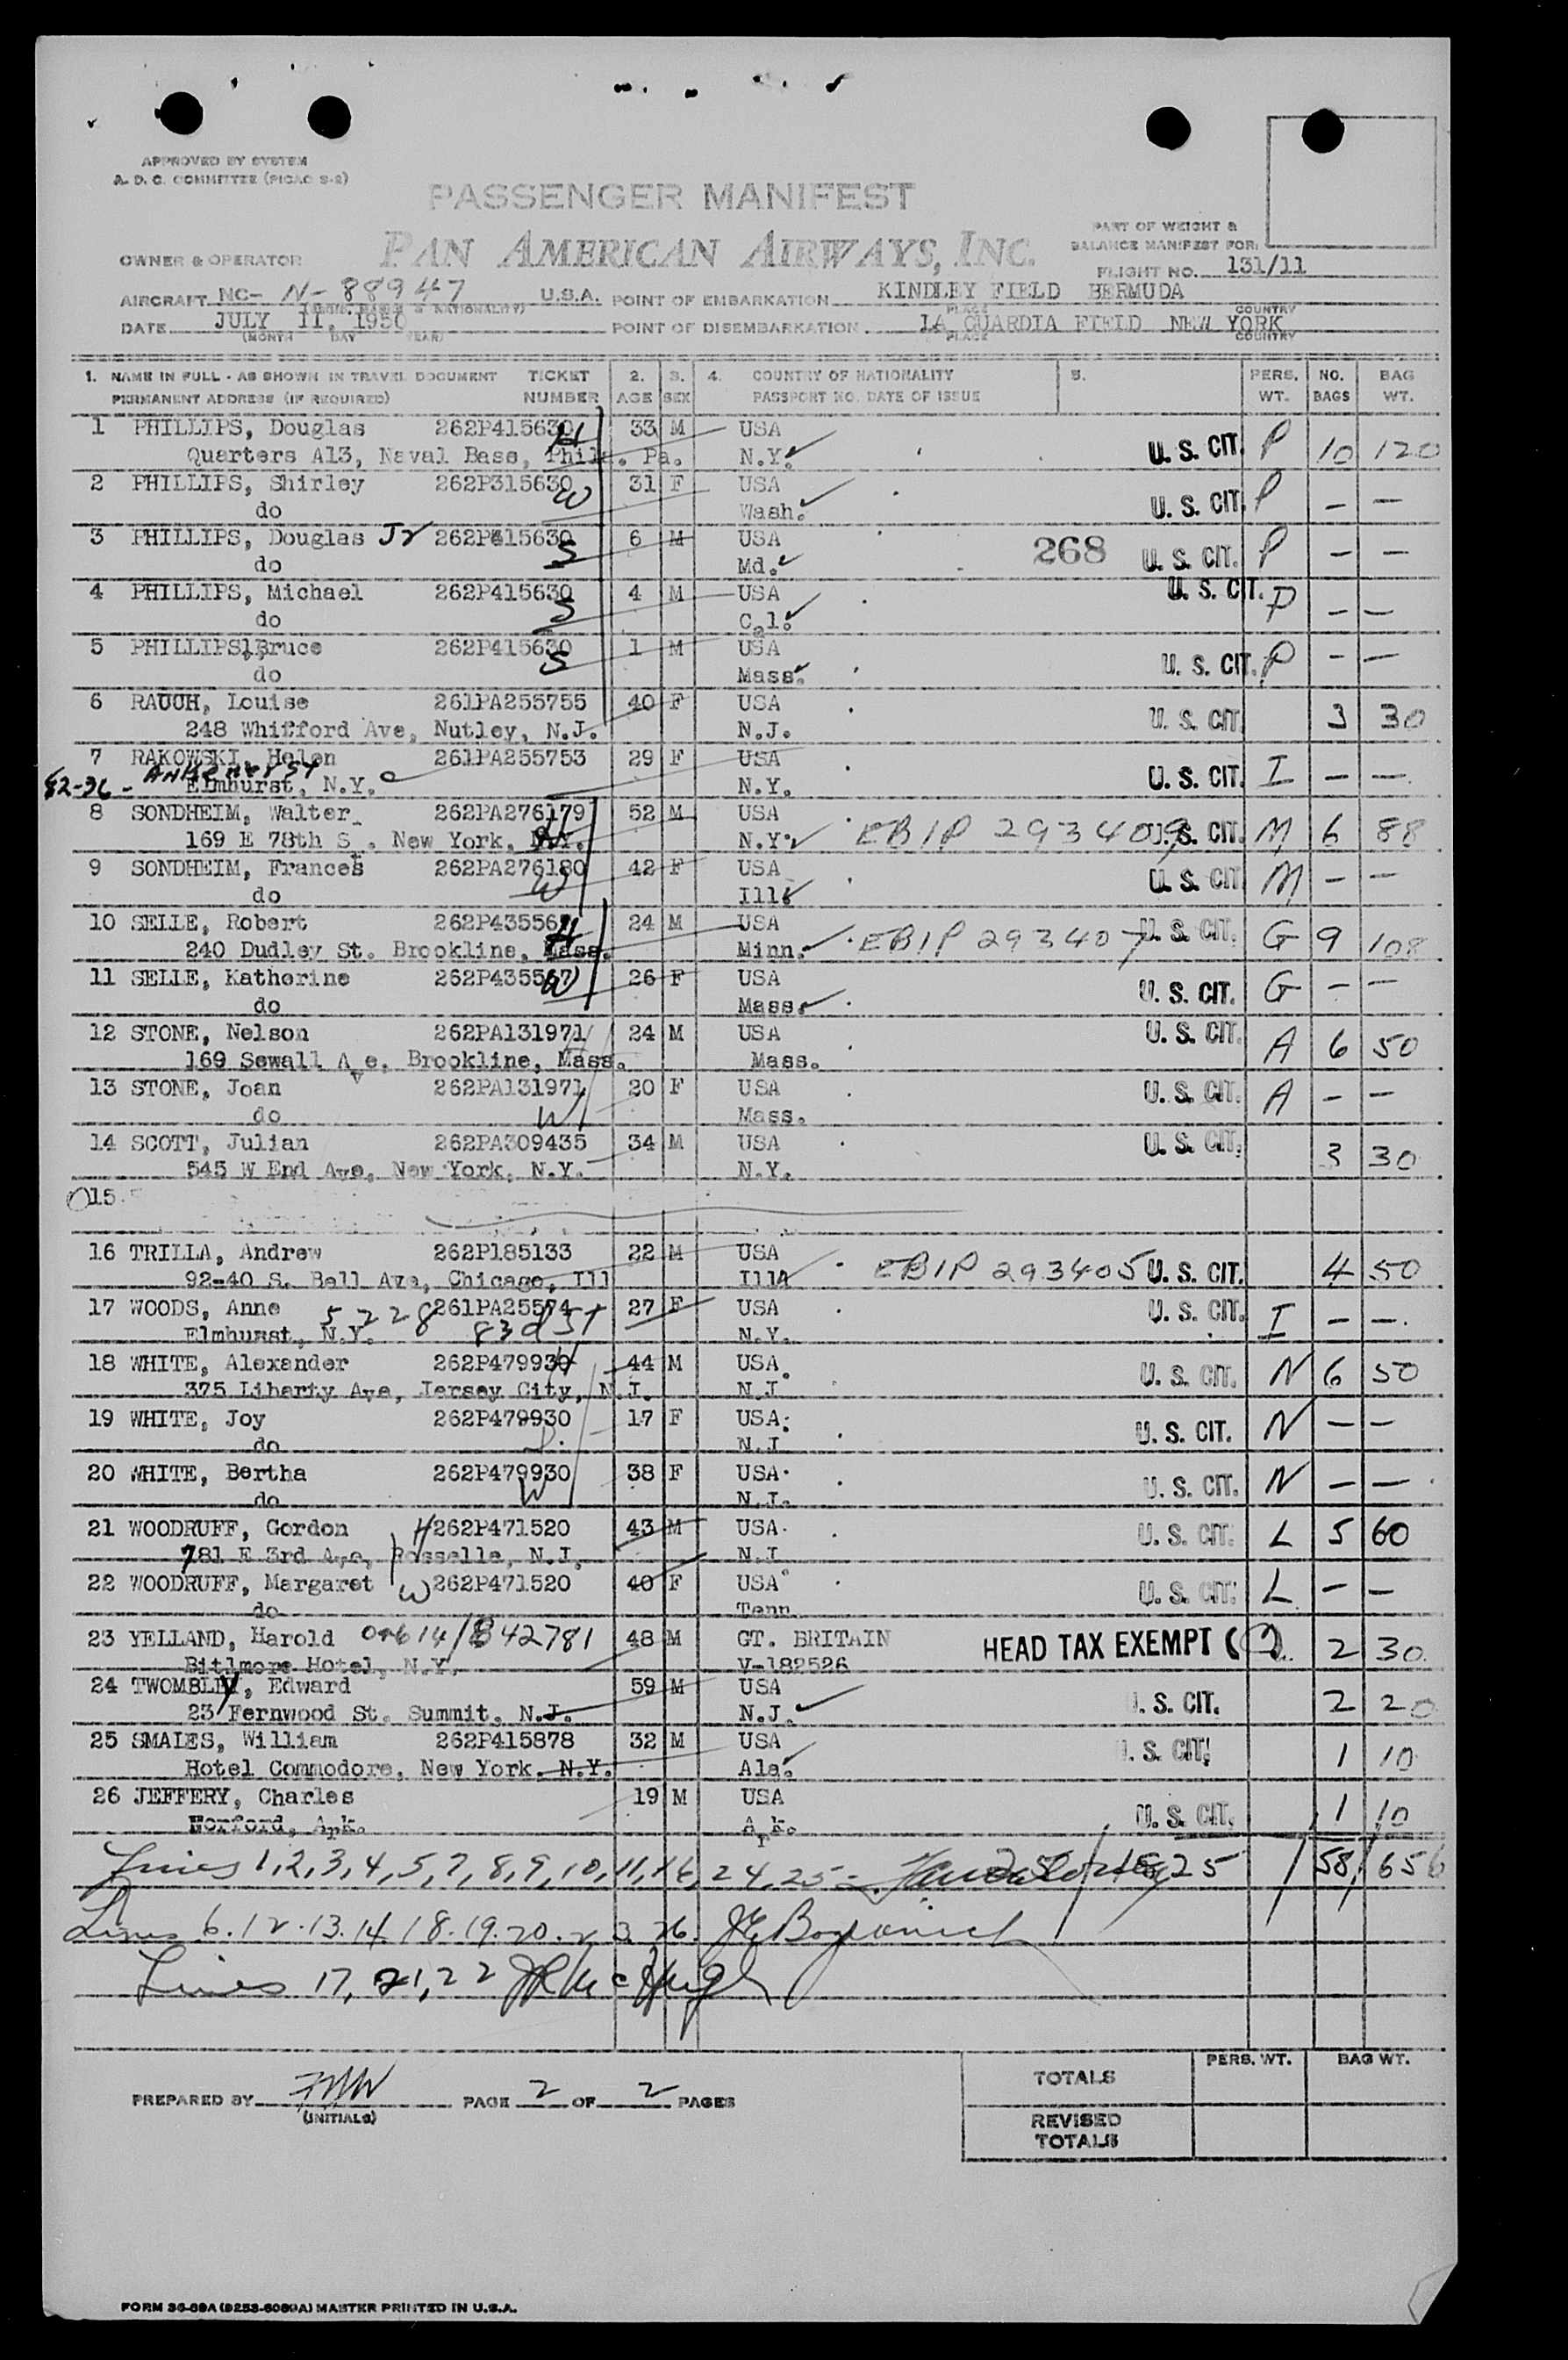 APPROVED BY SYSTEM
A. D. C. COMMITTEE (PICAO S-2)
PASSENGER MANIFEST
PAN AMERICAN AIRWAYS, INC.
PART OF WEIGHT &
BALANCE MANIFEST FOR:
OWNER & OPERATOR
FLIGHT NO. 131/11
AIRCRAFT NC- N-88947 U.S.A. POINT OF EMBARKATION KINDLEY FIELD BERMUDA
PLACE COUNTRY
DATE JULY 11, 1950 POINT OF DISEMBARKATION LA GUARDIA FIELD NEW YORK
(MONTH DAY YEAR) PLACE COUNTRY
1. NAME IN FULL - AS SHOWN IN TRAVEL DOCUMENT TICKET 2. 3. 4. COUNTRY OF NATIONALITY 5. PERS. NO. BAG
PERMANENT ADDRESS (IF REQUIRED) NUMBER AGE SEX PASSPORT NO. DATE OF ISSUE WT. BAGS WT.
1 PHILLIPS, Douglas 262P415630 H 33 M USA U. S. CIT. P 10 120
Quarters A13, Naval Base, Phila. Pa. N.Y.
2 PHILLIPS, Shirley 262P315630 W 31 F USA U. S. CIT. P — —
do Wash.
3 PHILLIPS, Douglas Jr 262P415630 S 6 M USA 268 U. S. CIT. P — —
do Md.
4 PHILLIPS, Michael 262P415630 S 4 M USA U. S. CIT. P — —
do Cal.
5 PHILLIPS, Bruce 262P415630 S 1 M USA U. S. CIT. P — —
do Mass.
6 RAUCH, Louise 261PA255755 40 F USA U. S. CIT 3 30
248 Whitford Ave, Nutley, N.J. N.J.
7 RAKOWSKI, Helen 261PA255753 29 F USA U. S. CIT. I — —
52-36 - Elmhurst, N.Y. N.Y.
8 SONDHEIM, Walter 262PA276179 52 M USA EBIP 293409 U. S. CIT. M 6 88
169 E 78th St. New York, N.Y. N.Y.
9 SONDHEIM, Frances 262PA276180 W 42 F USA U. S. CIT M — —
do Ill.
10 SELLE, Robert 262P435567 H 24 M USA EBIP 293407 U. S. CIT. G 9 108
240 Dudley St. Brookline, Mass. Minn.
11 SELLE, Katherine 262P435567 W 26 F USA U. S. CIT. G — —
do Mass.
12 STONE, Nelson 262PA131971 H 24 M USA U. S. CIT. A 6 50
169 Sewall Ave, Brookline, Mass. Mass.
13 STONE, Joan 262PA131971 W 20 F USA U. S. CIT. A — —
do Mass.
14 SCOTT, Julian 262PA309435 34 M USA U. S. CIT. 3 30
545 W End Ave, New York, N.Y. N.Y.
15
16 TRILLA, Andrew 262P185133 22 M USA EBIP 293405 U. S. CIT. 4 50
92-40 S. Bell Ave, Chicago, Ill Ill
17 WOODS, Anne 261PA25574 27 F USA U. S. CIT. I — —
Elmhurst, N.Y. 5228 83d St N.Y.
18 WHITE, Alexander 262P479930 H 44 M USA U. S. CIT. N 6 50
375 Liberty Ave, Jersey City, N.J. N.J.
19 WHITE, Joy 262P479930 17 F USA U. S. CIT. N — —
do N.J.
20 WHITE, Bertha 262P479930 W 38 F USA U. S. CIT. N — —
do N.J.
21 WOODRUFF, Gordon H 262P471520 43 M USA U. S. CIT. L 5 60
781 E 3rd Ave, Rosselle, N.J. N.J.
22 WOODRUFF, Margaret W 262P471520 40 F USA U. S. CIT. L — —
do Tenn.
23 YELLAND, Harold 48 M GT. BRITAIN HEAD TAX EXEMPT 2 30
Bitlmore Hotel, N.Y. V-182526
24 TWOMBLEY, Edward 59 M USA U. S. CIT. 2 20
23 Fernwood St. Summit, N.J. N.J.
25 SMALES, William 262P415878 32 M USA U. S. CIT. 1 10
Hotel Commodore, New York, N.Y. Ala.
26 JEFFERY, Charles 19 M USA U. S. CIT. 1 10
Norford, Ark. Ark.
Lines 1,2,3,4,5,7,8,9,10,11,16,24,25 25 58 656
Lines 6.12.13.14.18.19.20.23.26.
Lines 17, 21, 22 JR McHugh
PREPARED BY PAGE 2 OF 2 PAGES
(INITIALS)
PERS. WT. BAG WT.
TOTALS
REVISED
TOTALS
FORM 36-69A (9253-6089A) MASTER PRINTED IN U.S.A.